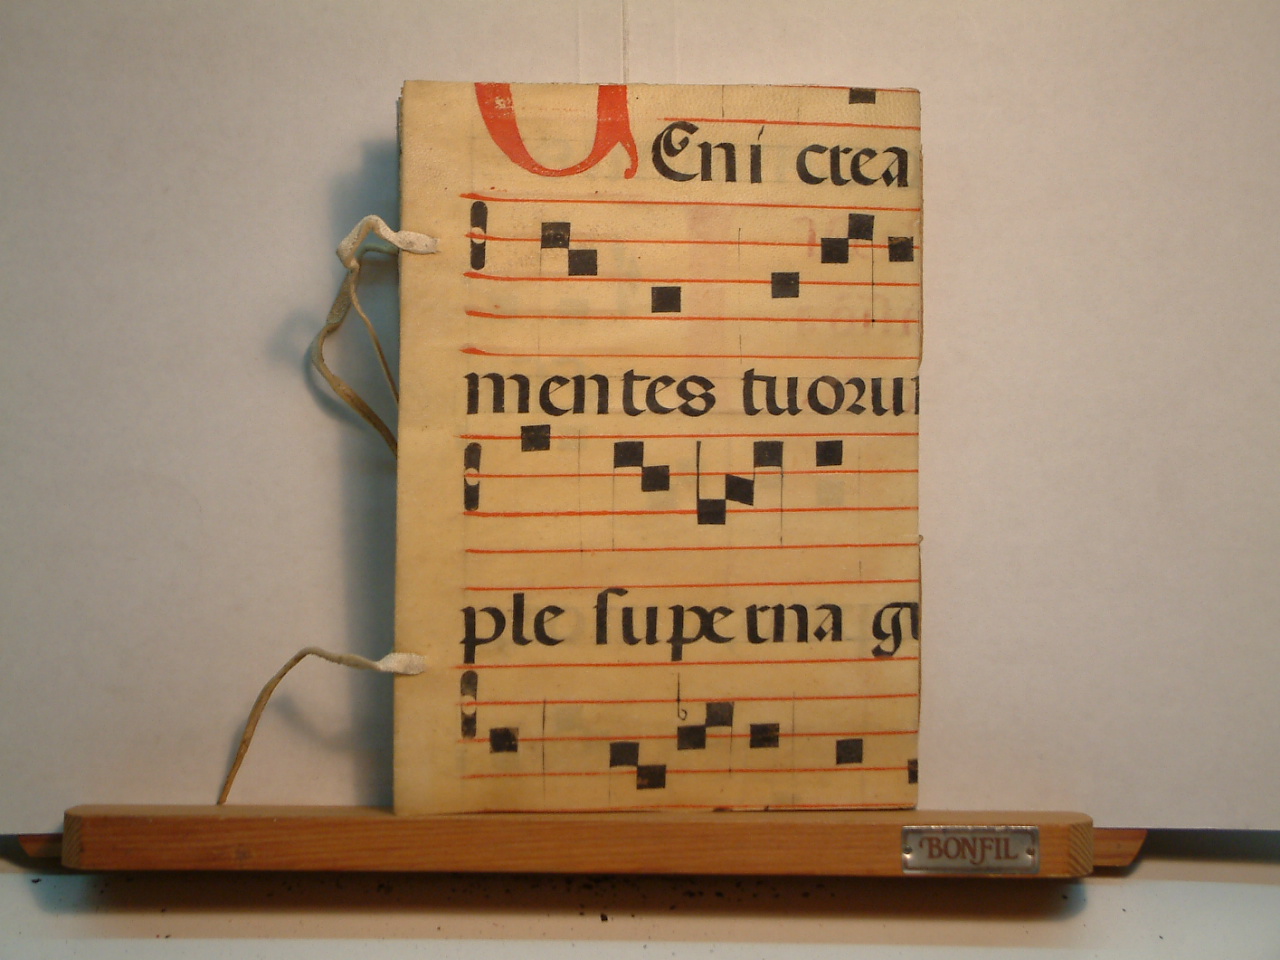 VEni crea
mentes tuoru
ple superna gr
BONFIL